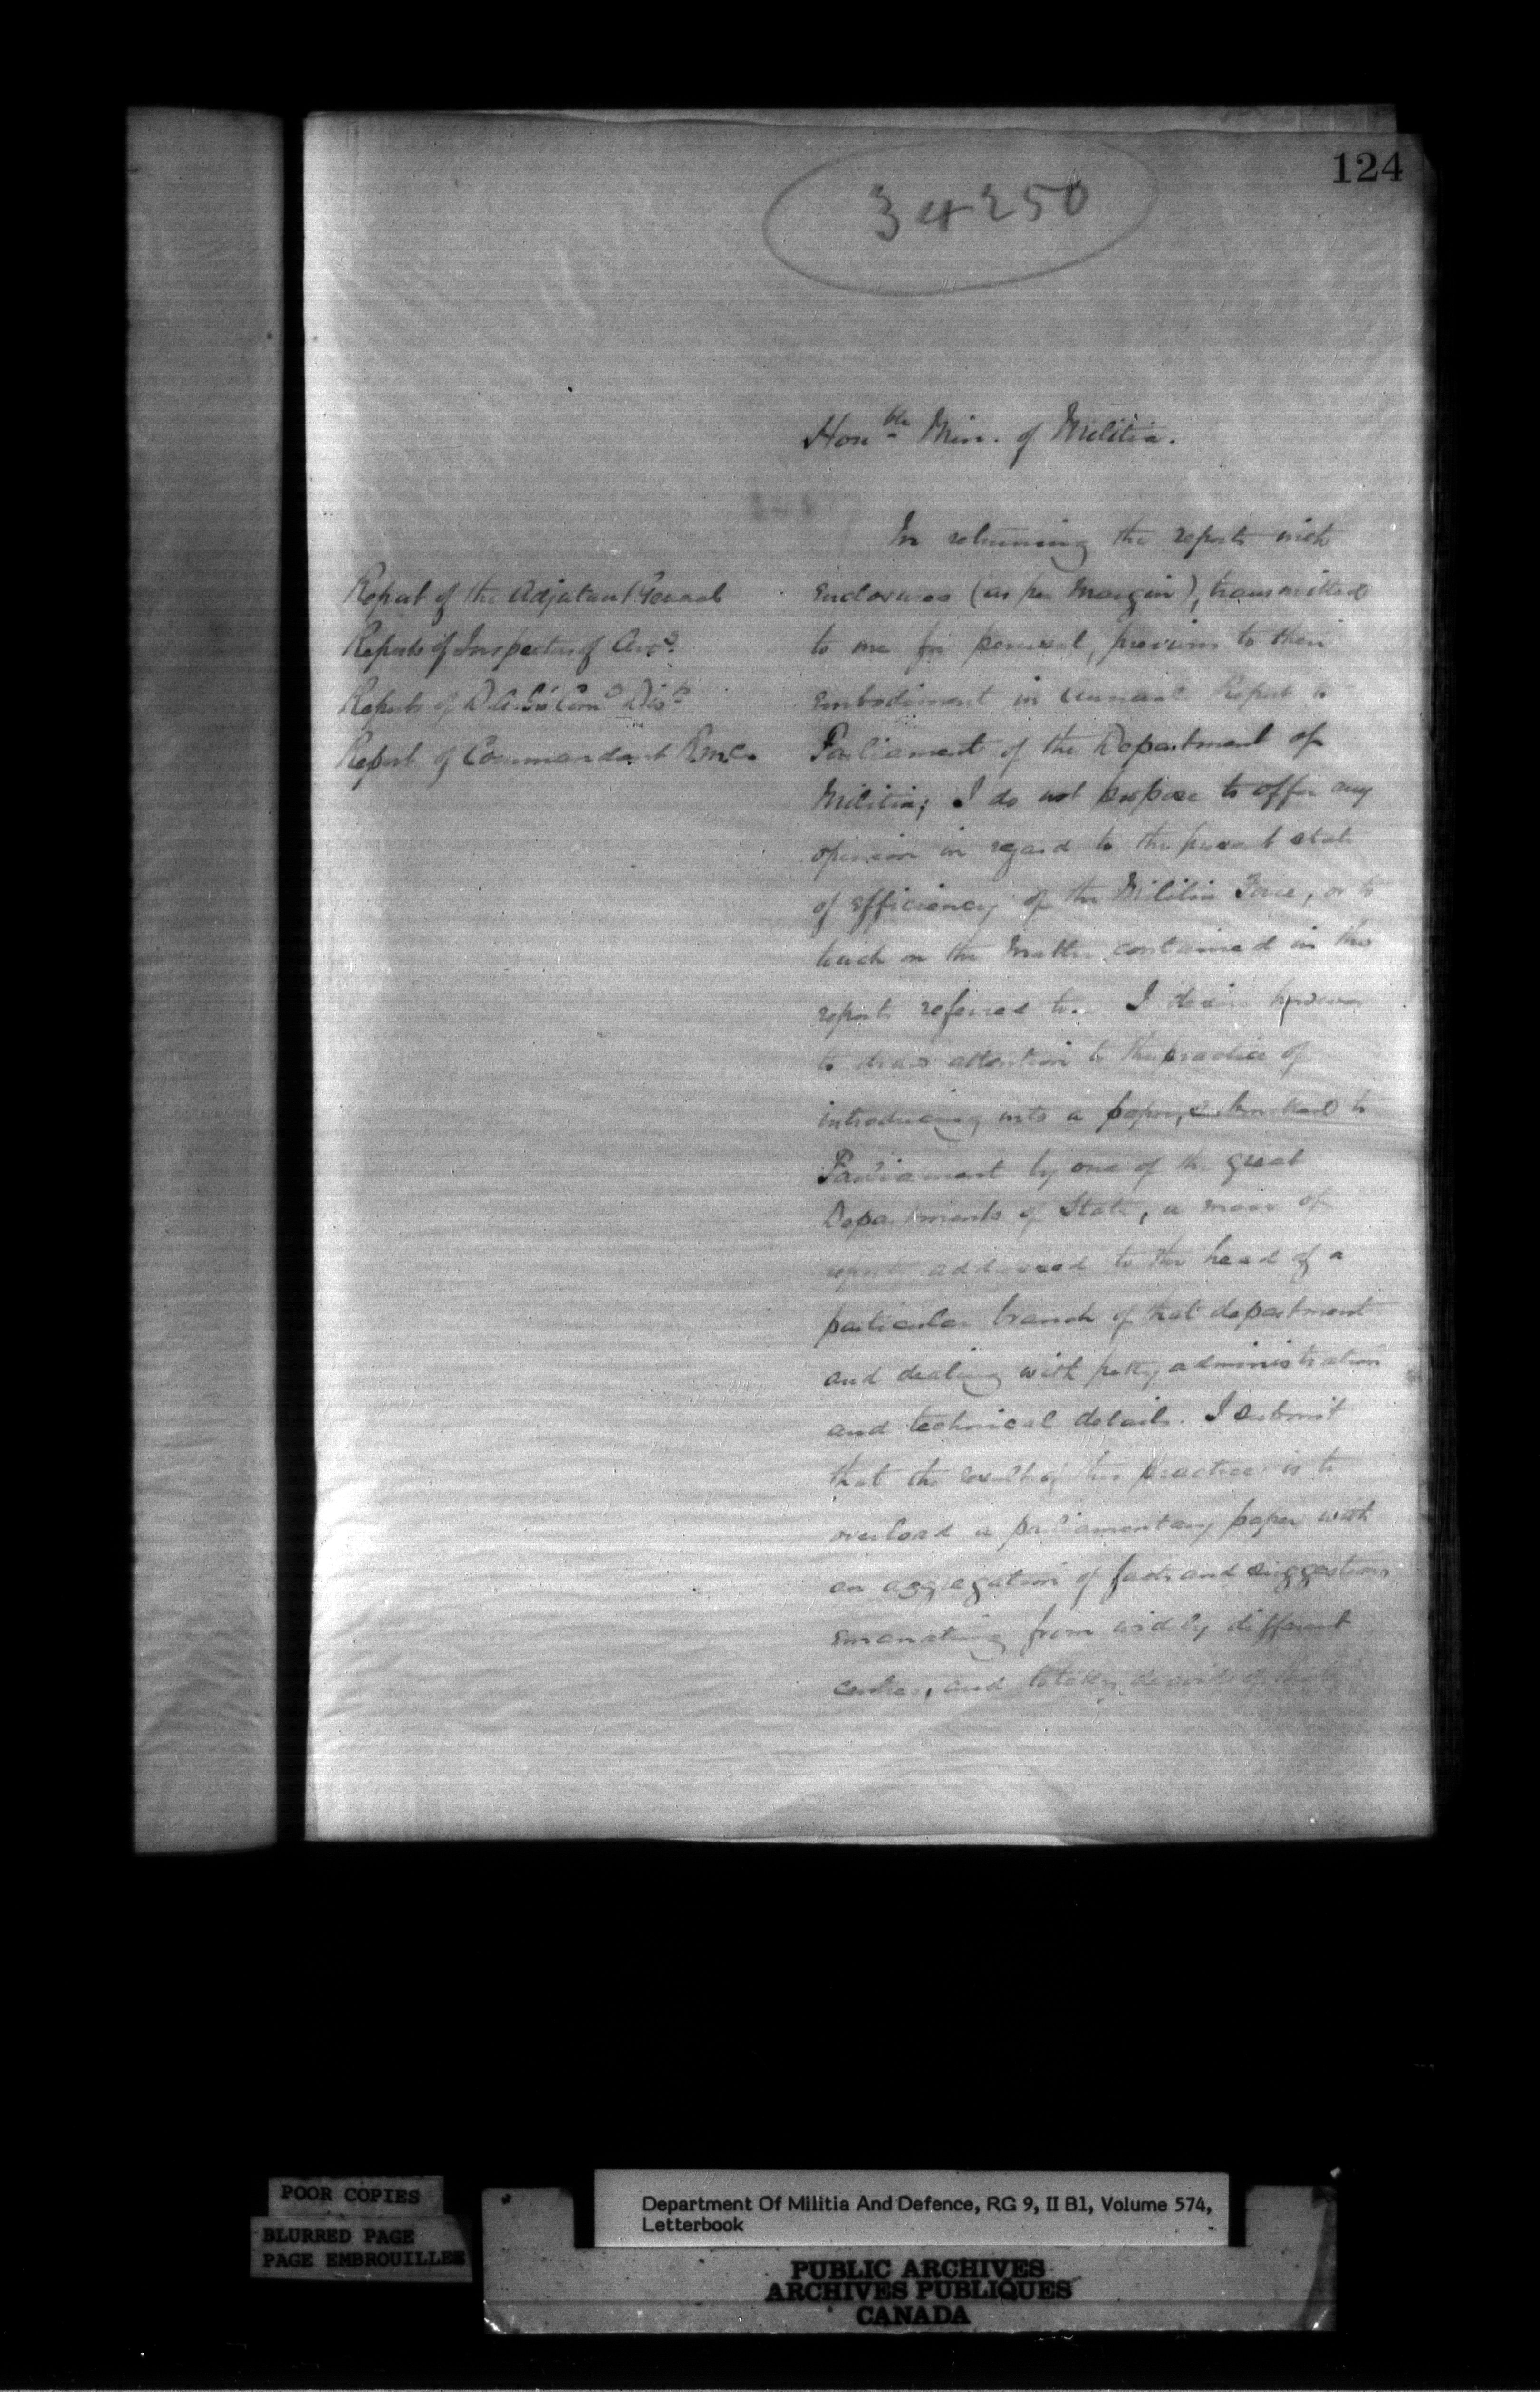 124
34250
Honble Min. of Militia.
In returning the reports with
Report of the Adjutant General
Reports of Inspector of
Reports of D.A.G's Comg Dists
Report of Commandant R.M.C.
enclosures (as per margin), transmitted
to me for perusal, previous to their
embodiment in Annual Report to
Parliament of the Department of
Militia; I do not propose to offer any
opinion in regard to the present state
of efficiency of the Militia Force, or to
touch on the matter contained in the
reports referred to. I desire however
to draw attention to the practice of
introducing into a paper, submitted to
Parliament by one of the great
Departments of State, a mass of
reports addressed to the head of a
particular branch of that department
and dealing with petty administration
and technical details. I submit
that the result of this practice is to
overload a parliamentary paper with
an aggregation of facts and suggestions
emanating from widely different
centres, and totally devoid of
POOR COPIES
BLURRED PAGE
PAGE EMBROUILLEE
Department Of Militia And Defence, RG 9, II B1, Volume 574,
Letterbook
PUBLIC ARCHIVES
ARCHIVES PUBLIQUES
CANADA